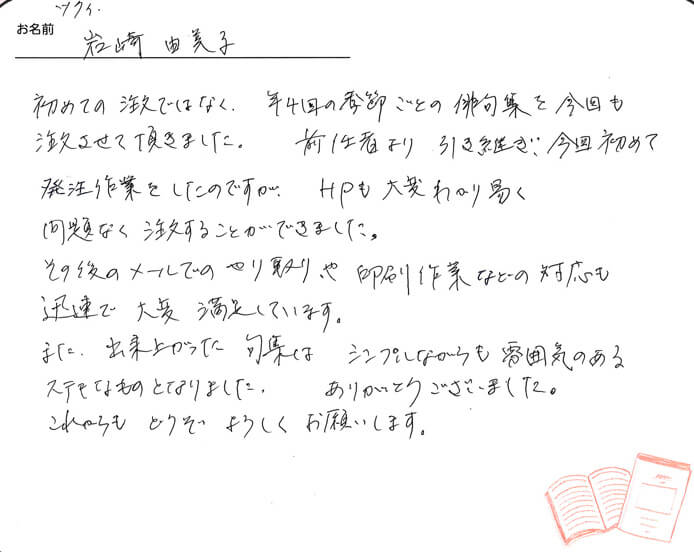 ツクイ
お名前 岩崎 由美子
初めての注文ではなく、年4回の季節ごとの俳句集を今回も
注文させて頂きました。 前任者より引き継ぎ、今回初めて
発注作業をしたのですが、HPも大変わかり易く
問題なく注文することができました。
その後のメールでのやり取りや印刷作業などの対応も
迅速で大変満足しています。
また、出来上がった句集は シンプルながらも雰囲気のある
ステキなものとなりました。 ありがとうございました。
これからもどうぞよろしくお願いします。